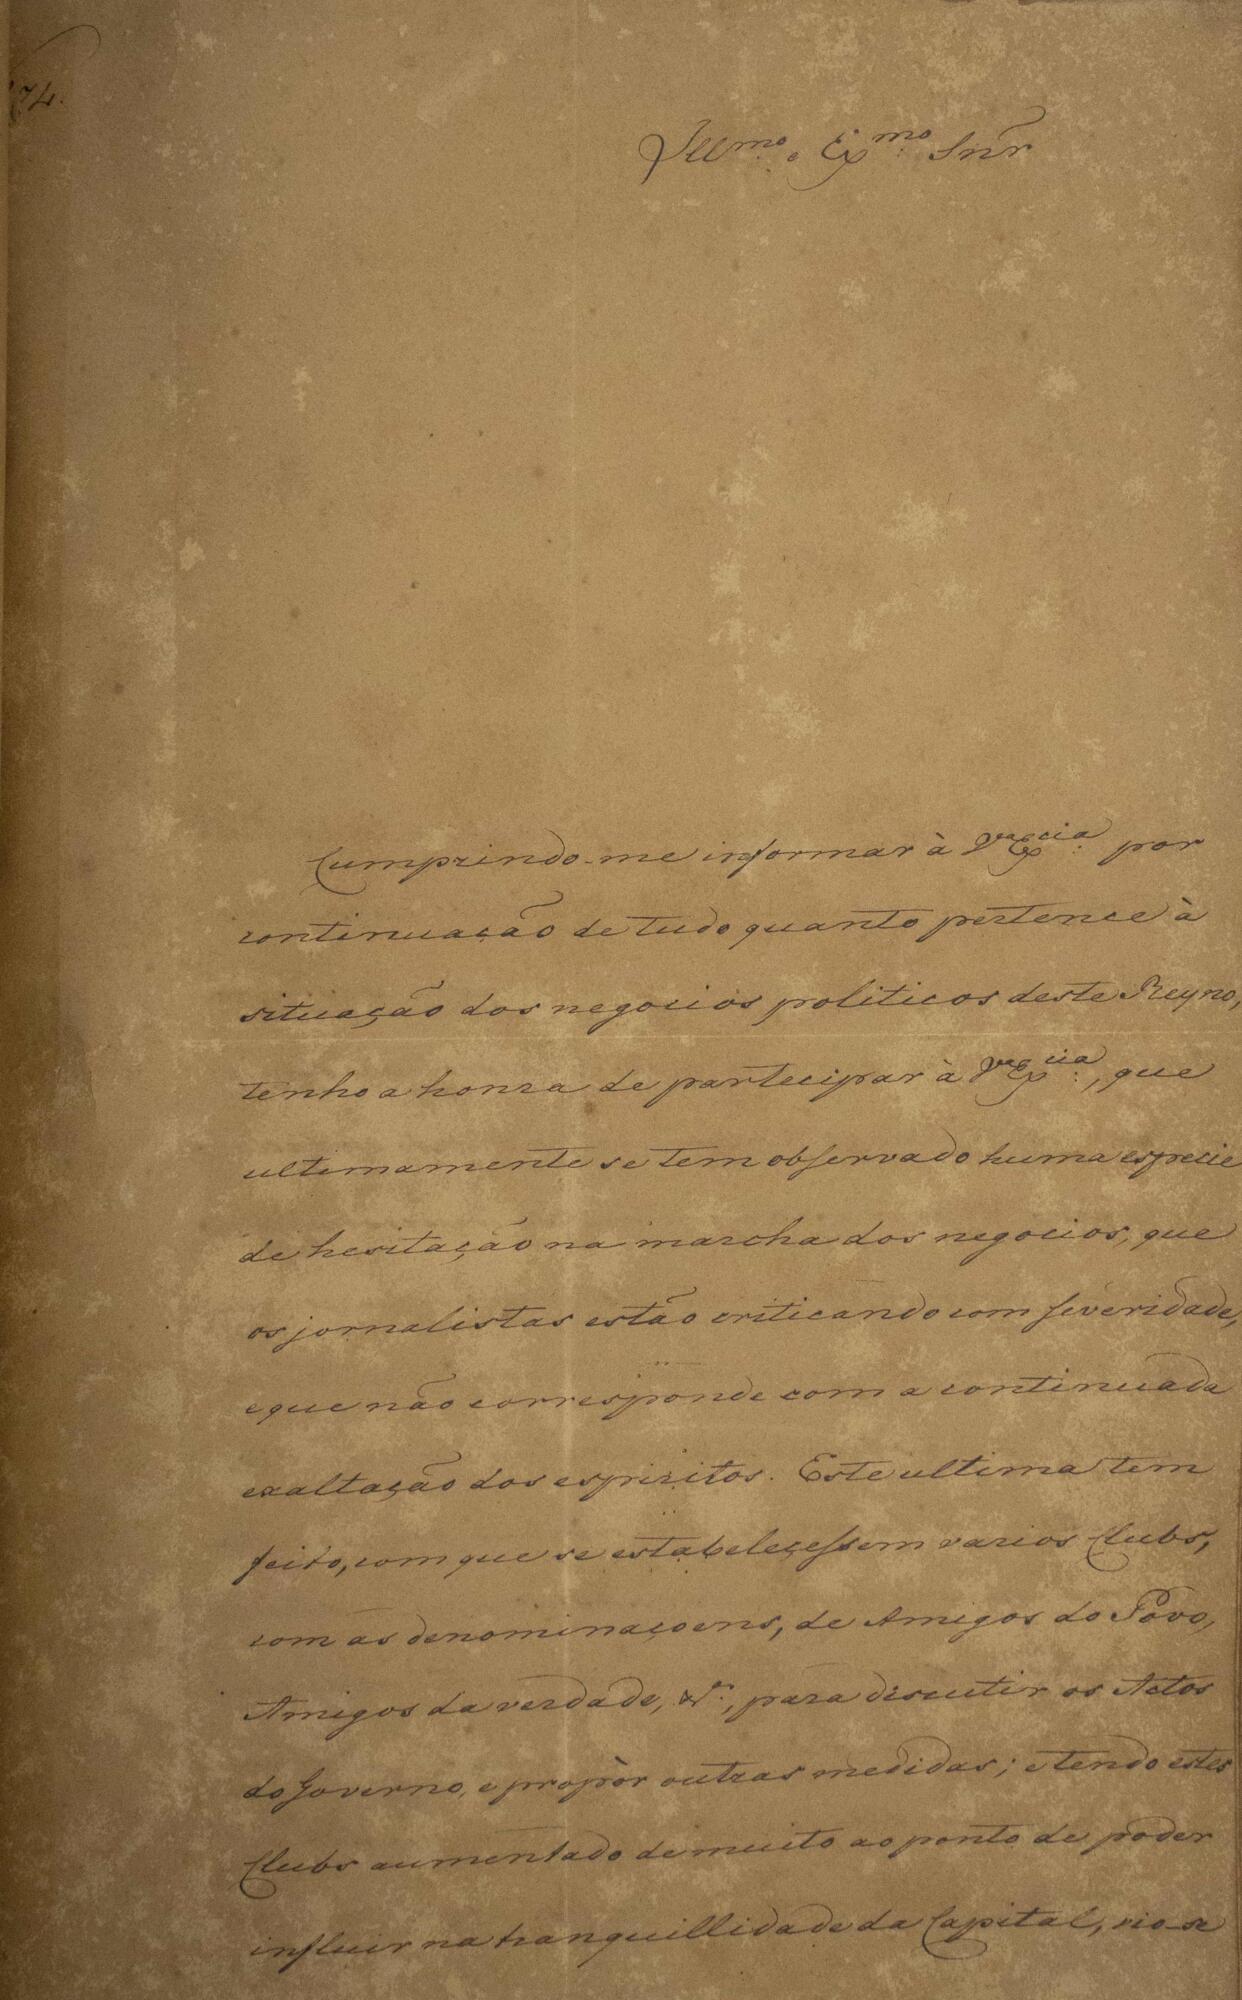 Illmo. e Exmo. Snr
Cumprindo-me informar à VaExcia. por
continuação de tudo quanto pertence à
situação dos negocios politicos deste Reyno,
tenho a honra de partecipar à VaExcia., que
ultimamente se tem observado huma especie
de hesitação na marcha dos negocios, que
os jornalistas estão criticando com severidade,
e que não corresponde com a continuada
exaltação dos espiritos. Este ultima tem
feito, com que se estabeleçessem varios Clubs,
com as denominaçoens, de Amigos do Povo,
Amigos da verdade, &a., para discutir os Actos
do Governo, e propòr outras medidas; e tendo estes
Clubs aumentado de muito ao ponto de poder
influir na tranquillidade da Capital, vio-se